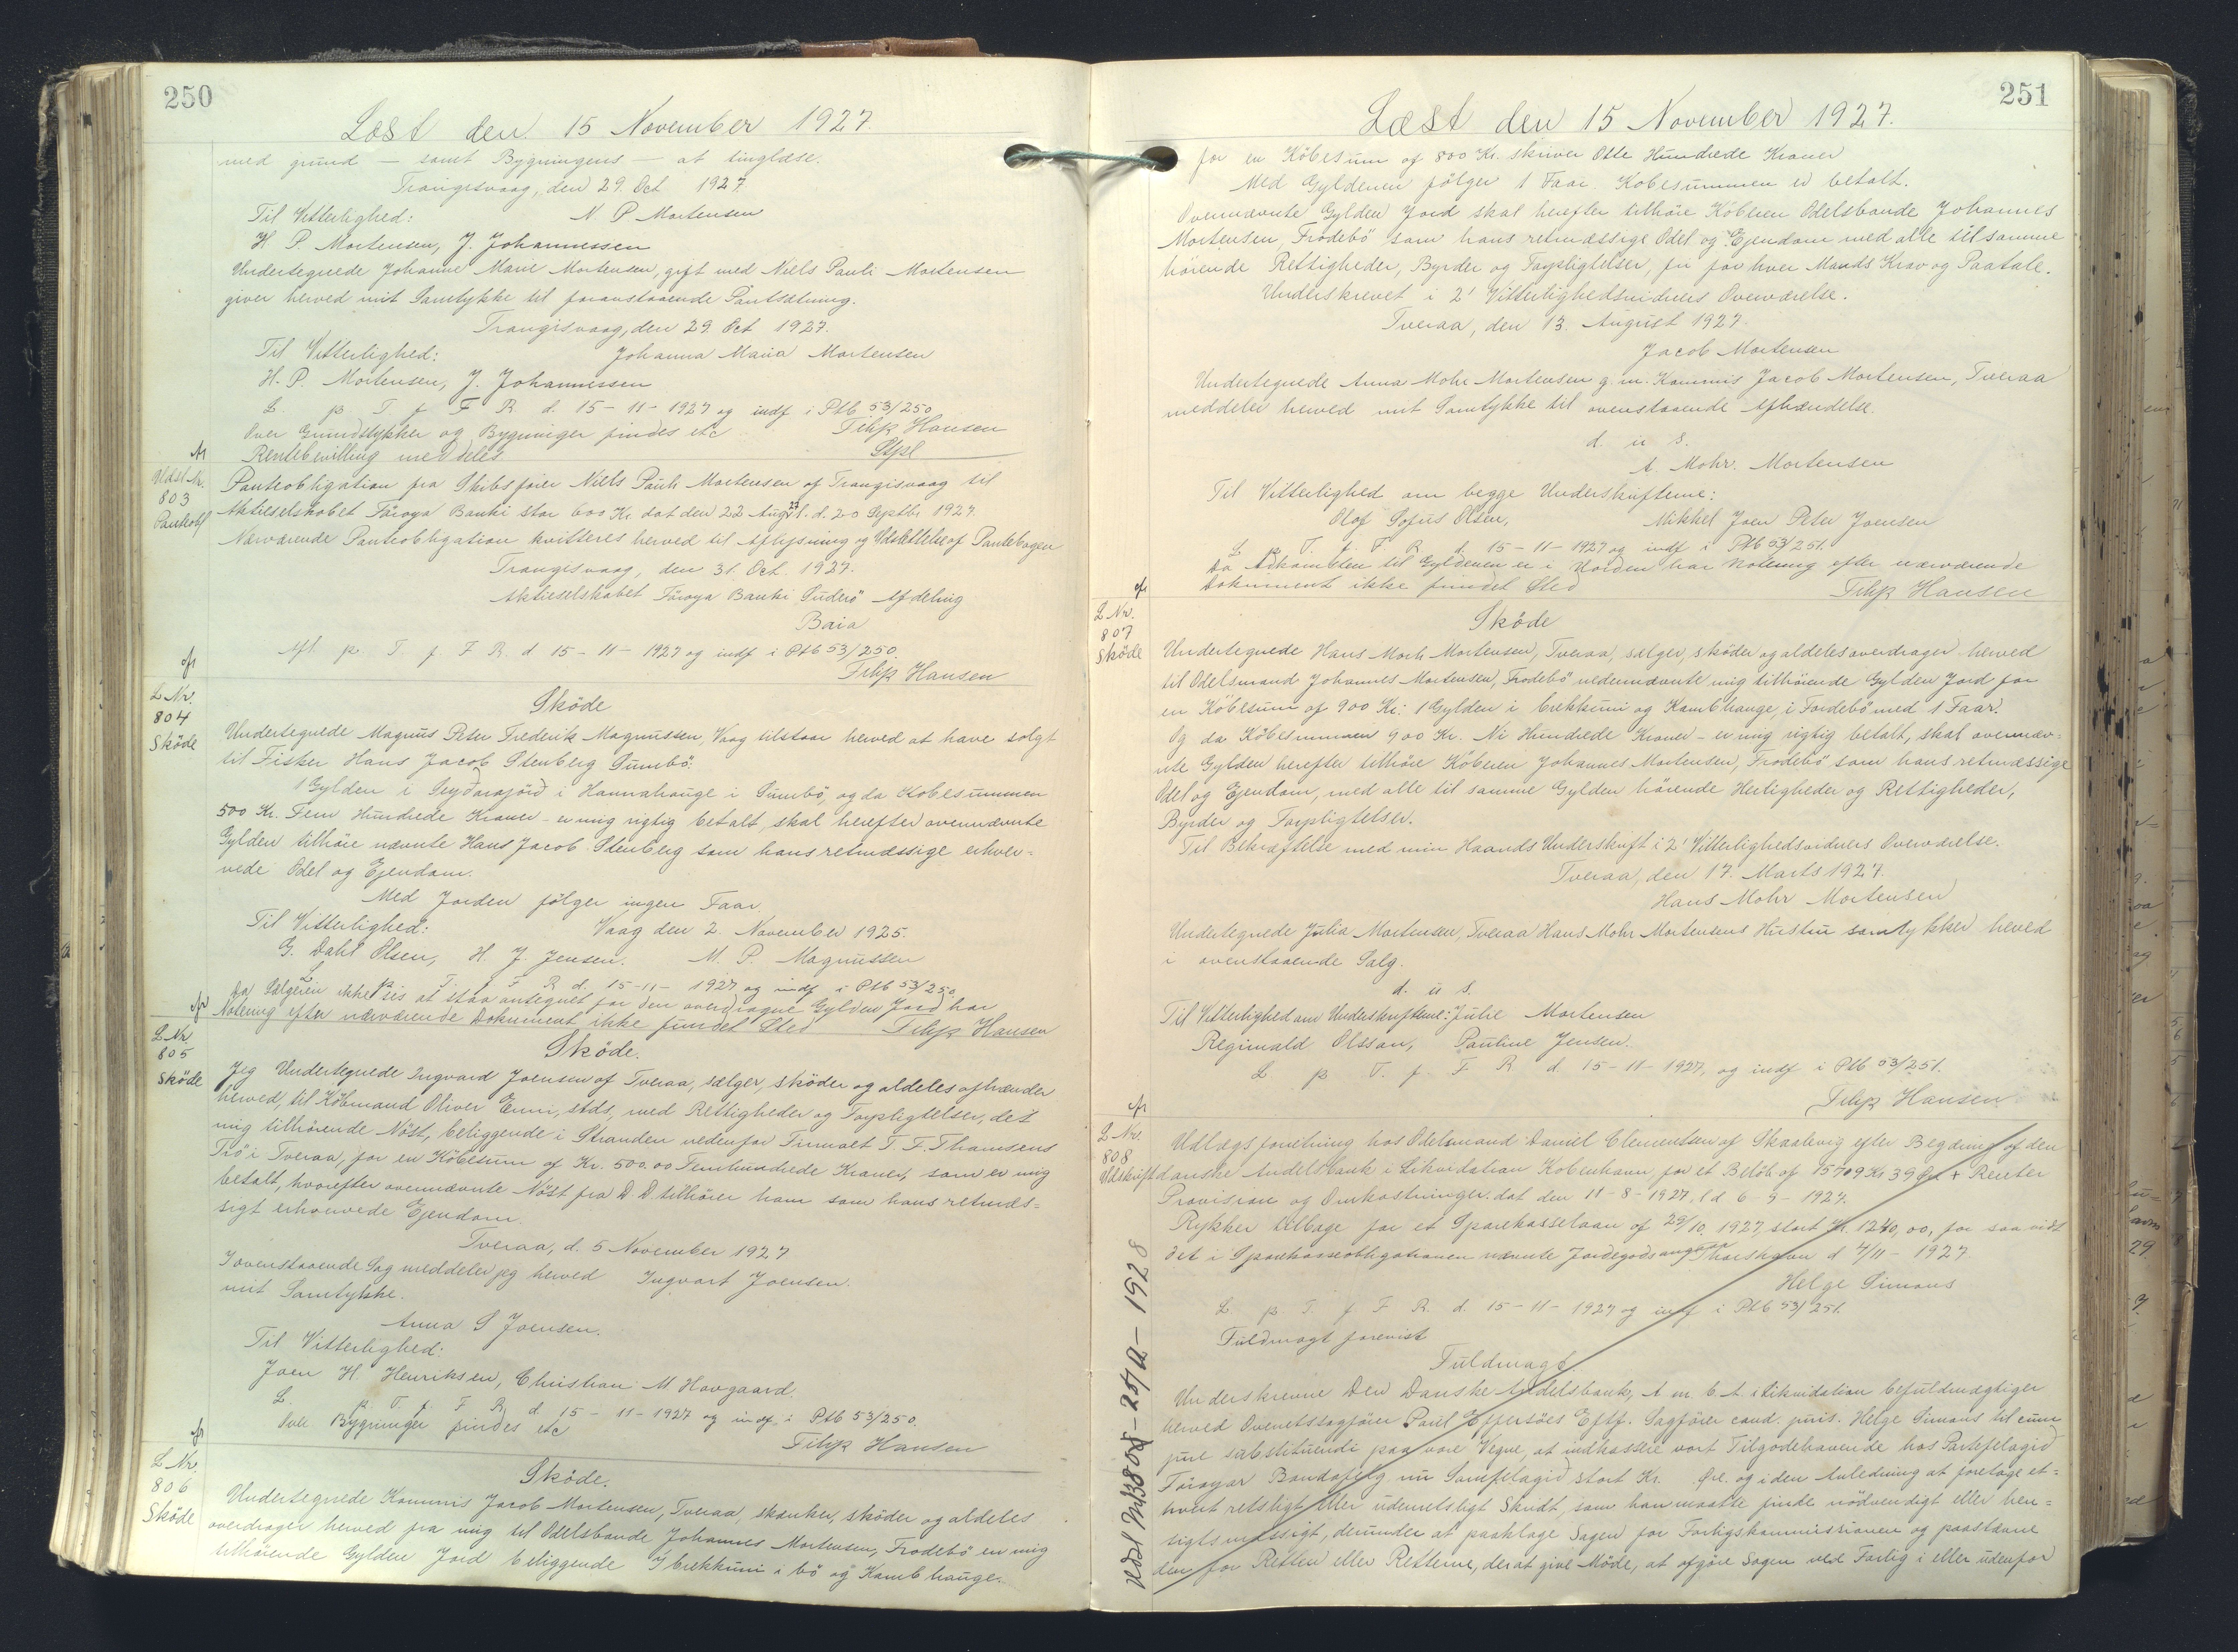 250
Læst den 15 November 1927.
med grund — samt Bygningens — at tinglæse.
Trangisvaag, den 29. Oct 1927.
Til Vitterlighed: N. P Mortensen
H. P. Mortensen, J. Johannessen
Undertegnede Johanne Marie Mortensen, gift med Niels Pauli Mortensen
giver herved mit Samtykke til foranstaaende Pantsætning.
Trangisvaag, den 29. Oct 1927.
Til Vitterlighed: Johanna Maria Mortensen
H. P. Mortensen, J. Johannessen
L. p. T. f. F R. d. 15-11-1927 og indf i Ptb 53/250
Over Grundstykker og Bygninger findes etc Filip Hansen
Rentebevilling meddeles Stpl
Udsl Nr.
803
Pantobl
Panteobligation fra Skibsfører Niels Pauli Mortensen af Trangisvaag til
Aktieselskabet Föroya Banki stor 600 Kr. dat den 22 Aug 27 l. d. 20 Septbr 1927.
Nærværende Panteobligation kvitteres herved til Aflysning og Udslettelse af Pantebogen
Trangisvaag, den 31. Oct. 1927.
Aktieselskabet Föroya Banki Suderö Afdeling
Baia
Afl. p. T. f. F. R. d 15-11-1927 og indf i Ptb 53/250.
Filip Hansen
L Nr.
804
Sköde
Sköde
Undertegnede Magnus Peter Frederik Magnussen, Vaag tilstaar herved at have solgt
til Fisker Hans Jacob Stenberg Sumbö:
1 Gylden i Seydarajörd i Hannahauge i Sumbö, og da Kobesummen
500 Kr. Fem Hundrede Kroner - er mig rigtig betalt, skal herefter ovennævnte
Gylden tilhöre nævnte Hans Jacob Stenberg som hans retmæssige erhver-
vede Odel og Ejendom.
Med Jorden fölger ingen Faar.
Til Vitterlighed: Vaag den 2. November 1925.
G. Dahl Olsen, H. J. Jensen. M. P. Magnussen
L p. T. f. F R d. 15-11-1927 og indf i Ptb 53/250
Da Sælgeren ikke ses at staa antegnet for den overdragne Gylden Jord har
Notering efter nærværende Dokument ikke fundet Sted Filip Hansen
L Nr.
805
Sköde
Sköde.
Jeg Undertegnede Ingvard Joensen af Tveraa, sælger, sköder og aldeles afhænder
herved, til Köbmand Oliver Enni, stds, med Rettigheder og Forpligtelser, det
mig tilhörende Nöst, beliggende i Stranden nedenfor Firmaet T. F. Thomsens
Trö i Tveraa, for en Köbesum af Kr. 500.00 Femhundrede Kroner, som er mig
betalt, hvorefter ovennævnte Nöst fra D. D. tilhörer ham som hans retmæs-
sigt erhvervede Ejendom.
Tveraa, d. 5 November 1927
I ovenstaaende Sag meddeler jeg herved Ingvart Joensen.
mit Samtykke.
Anna S Joensen.
Til Vitterlighed:
Joen H. Henriksen, Christian M Hovgaard.
L. p. T. f. F R, d. 15-11-1927 og indf. i Ptb 53/250.
Over Bygninger findes etc
Filip Hansen
L Nr.
806
Sköde
Sköde.
Undertegnede Kommis Jacob Mortensen, Tveraa, skænker, sköder og aldeles
overdrager herved fra mig til Odelsbonde Johannes Mortensen, Frodebö en mig
tilhörende Gylden Jord beliggende I brekkuni i bö og Kambhauge.
251
Læst den 15 November 1927.
for en Köbesum af 800 Kr. skriver Otte Hundrede Kroner
Med Gyldenen fölger 1 Faar. Kobesummen er betalt.
Ovennævnte Gylden Jord skal herefter tilhöre Köberen Odelsbonde Johannes
Mortensen, Frodebö som hans retmæssige Odel og Ejendom med alle til samme
hörende Rettigheder, Byrder og Forpligtelser, fri for hver Mands Krav og Paatale.
Underskrevet i 2' Vitterlighedsvidners Overværelse.
Tveraa, den 13. August 1927.
Jacob Mortensen
Undertegnede Anna Mohr Mortensen g. m. Kommis Jacob Mortensen, Tveraa
meddeler herved mit Samtykke til ovenstaaende Afhændelse.
d. u s.
A. Mohr. Mortensen
Til Vitterlighed om begge Underskrifterne:
Olof Sofus Olsen, Mikkel Joen Peter Joensen
L p T. f. F R. d. 15-11-1927 og indf i Ptb 53/251.
Da Adkomsten til Gyldenen er i Uorden har Notering efter nærværende
Dokument ikke fundet Sted Filip Hansen
L Nr.
807
Sköde
Sköde
Undertegnede Hans Mohr Mortensen, Tveraa, sælger, sköder og aldeles overdrager herved
til Odelsmand Johannes Mortensen, Frodebö nedennævnte mig tilhörende Gylden Jord for
en Köbesum af 900 Kr. 1 Gylden i brekkuni og Kambhauge, i Fordebö med 1 Faar.
Og da Köbesummen 900 Kr. Ni Hundrede Kroner - er mig rigtig betalt, skal ovennæv-
nte Gylden herefter tilhöre Köberen Johannes Mortensen, Frodebö som hans retmæssige
Odel og Ejendom, med alle til samme Gylden hörende Herligheder og Rettigheder,
Byrder og Forpligtelser.
Til Bekræftelse med min Haands Underskrift i 2' Vitterlighedsvidners Overværelse.
Tveraa, den 17. Marts 1927.
Hans Mohr Mortensen
Undertegnede Julia Mortensen, Tveraa Hans Mohr Mortensens Hustru samtykker herved
i ovenstaaende Salg.
d. u s.
Til Vitterlighed om Underskrifterne: Julie Mortensen
Reginald Olsson, Pauline Jensen.
L p T. f. F R d. 15-11-1927, og indf i Ptb 53/251.
Filip Hansen
L Nr.
808
Udskrift
Udlægsforretning hos Odelsmand Daniel Clementsen af Skaalevig efter Begæring af den
danske Andelsbank i Likvidation Kobenhavn, for et Belöb af 15709 Kr 39 Öre + Renter
Provision og Omkostninger. dat den 11-8-1927, l d 6-9-1927.
Rykker tilbage for et Sparekasselaan af 29/10. 1927, stort Kr. 1240,00, for saavidt
det i Sparekasseobligationen nævnte Jordegods angaar Thorshavn d 7/11-1927.
Helge Simons
L p. T. f F R. d. 15-11-1927 og indf i Ptb 53/251.
Fuldmagt forevist
Fuldmagt
Underskrevne Den Danske Andelsbank, A. m. b. A. i Likvidation befuldmægtiger
herved Overretssagförer Paul Effersöes Eftf. Sagförer cand. juris. Helge Simons til cum
jure substituendi paa vore Vegne, at indkassere vort Tilgodehavende hos Partsfelagid
Föroyar Bondafelag nu Samfelagid, stort Kr. Öre. og i den Anledning at foretage et-
hvert retsligt eller udenretsligt Skridt, som han maatte finde nödvendigt eller hen-
sigtsmæssigt, derunder at paaklage Sagen for Forligskommissionen og paastævne
den for Retten eller Retterne, derat give Möde, at afgöre Sagen ved Forlig i eller udenfor